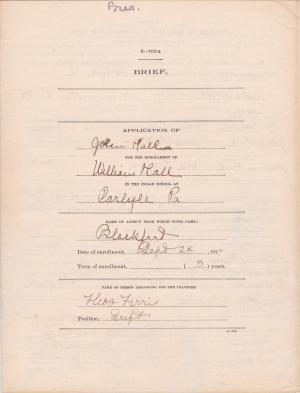 Bres.
5—192a
BRIEF.
APPLICATION OF
John Hall
FOR THE ENROLLMENT OF
William Hall
IN THE INDIAN SCHOOL AT
Carlyle Pa
NAME OF AGENCY FROM WHICH PUPIL CAME:
Blackford
Date of enrollment, Sept 24 189
Term of enrollment, ( 3 ) years.
NAME OF PERSON ARRANGING FOR THE TRANSFER:
Ferris
Position, Supt